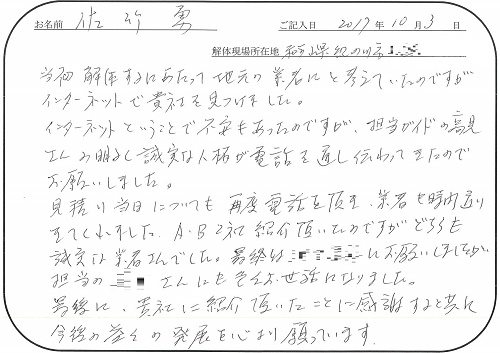 お名前 佐々 勇 ご記入日 2017年10月3日
解体現場所在地 和歌山県紀の川市
当初解体するにあたって地元の業者にと考えていたのですが
インターネットで貴社を見つけました。
インターネットということで不安もあったのですが、担当ガイドの高見
さんの明るく誠実な人柄が電話を通し伝わってきたので
お願いしました。
見積り当日についても再度電話を頂き、業者も時間通り
きてくれました。A・B 2社紹介頂いたのですがどちらも
誠実な業者さんでした。最終は にお願いしましたが
担当の さんにも色々お世話になりました。
最後に、貴社に紹介頂いたことに感謝すると共に
今後の益々の発展を心より願っています。